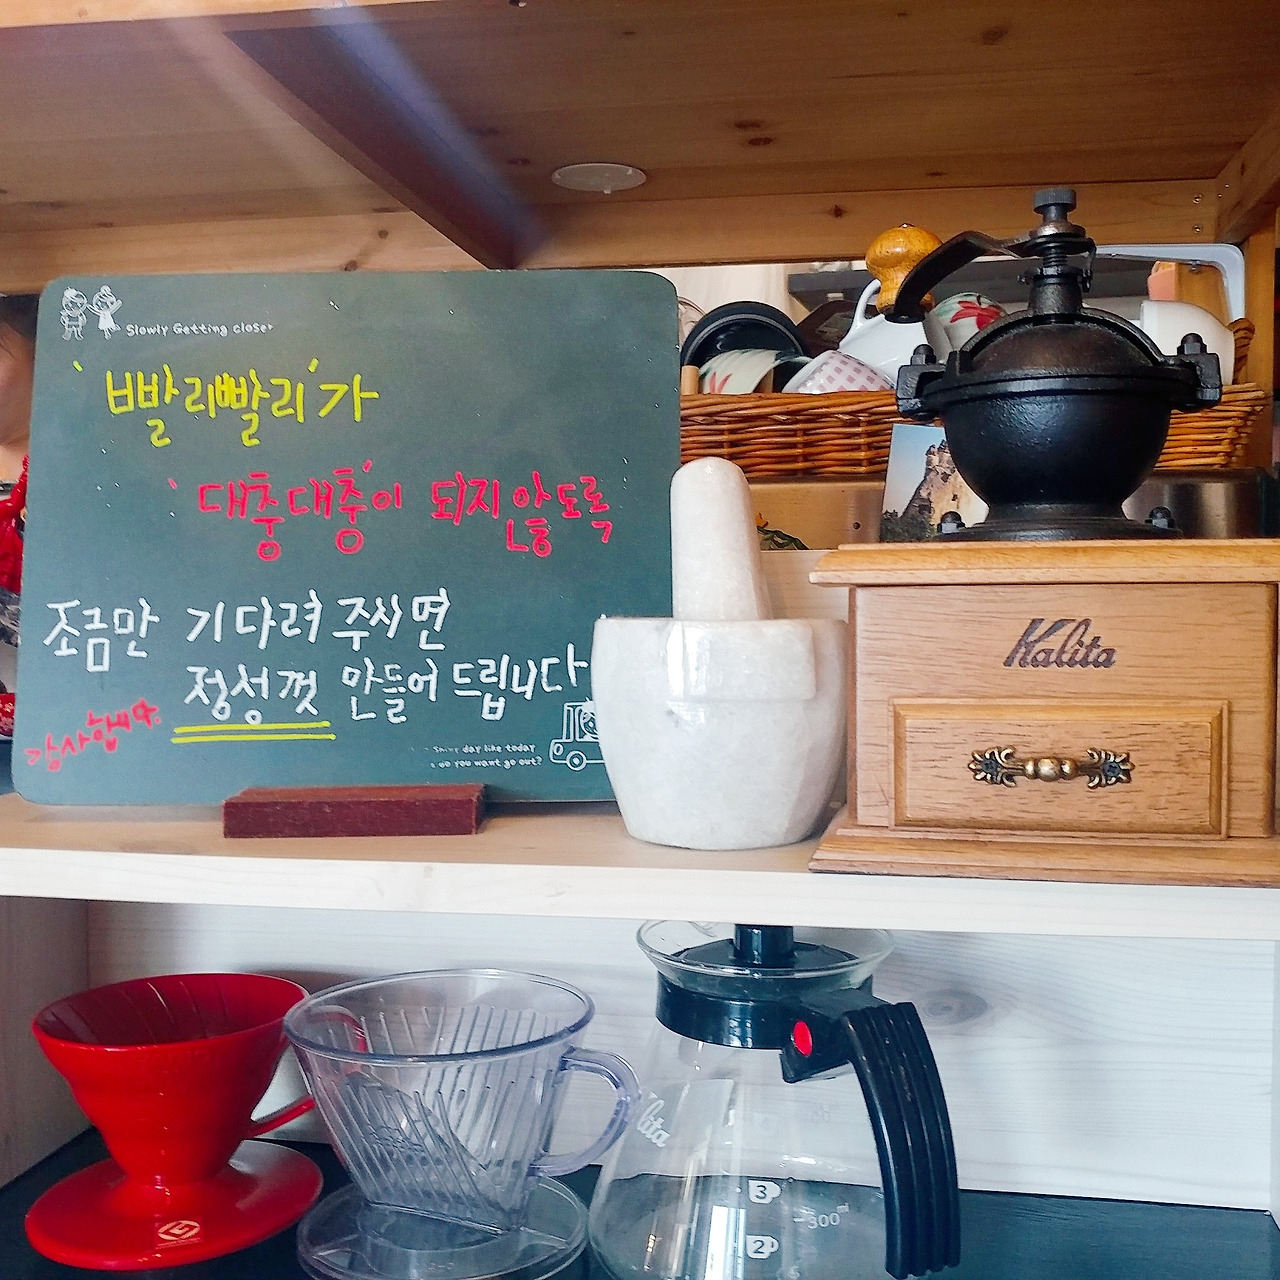 Slowly Getting closer
'빨리빨리'가
'대충대충'이 되지않도록
조금만 기다려 주시면
정성껏 만들어 드립니다
감사합니다.
Shiny day like today
do you want go out?
Kalita
lita
3
300ml
2